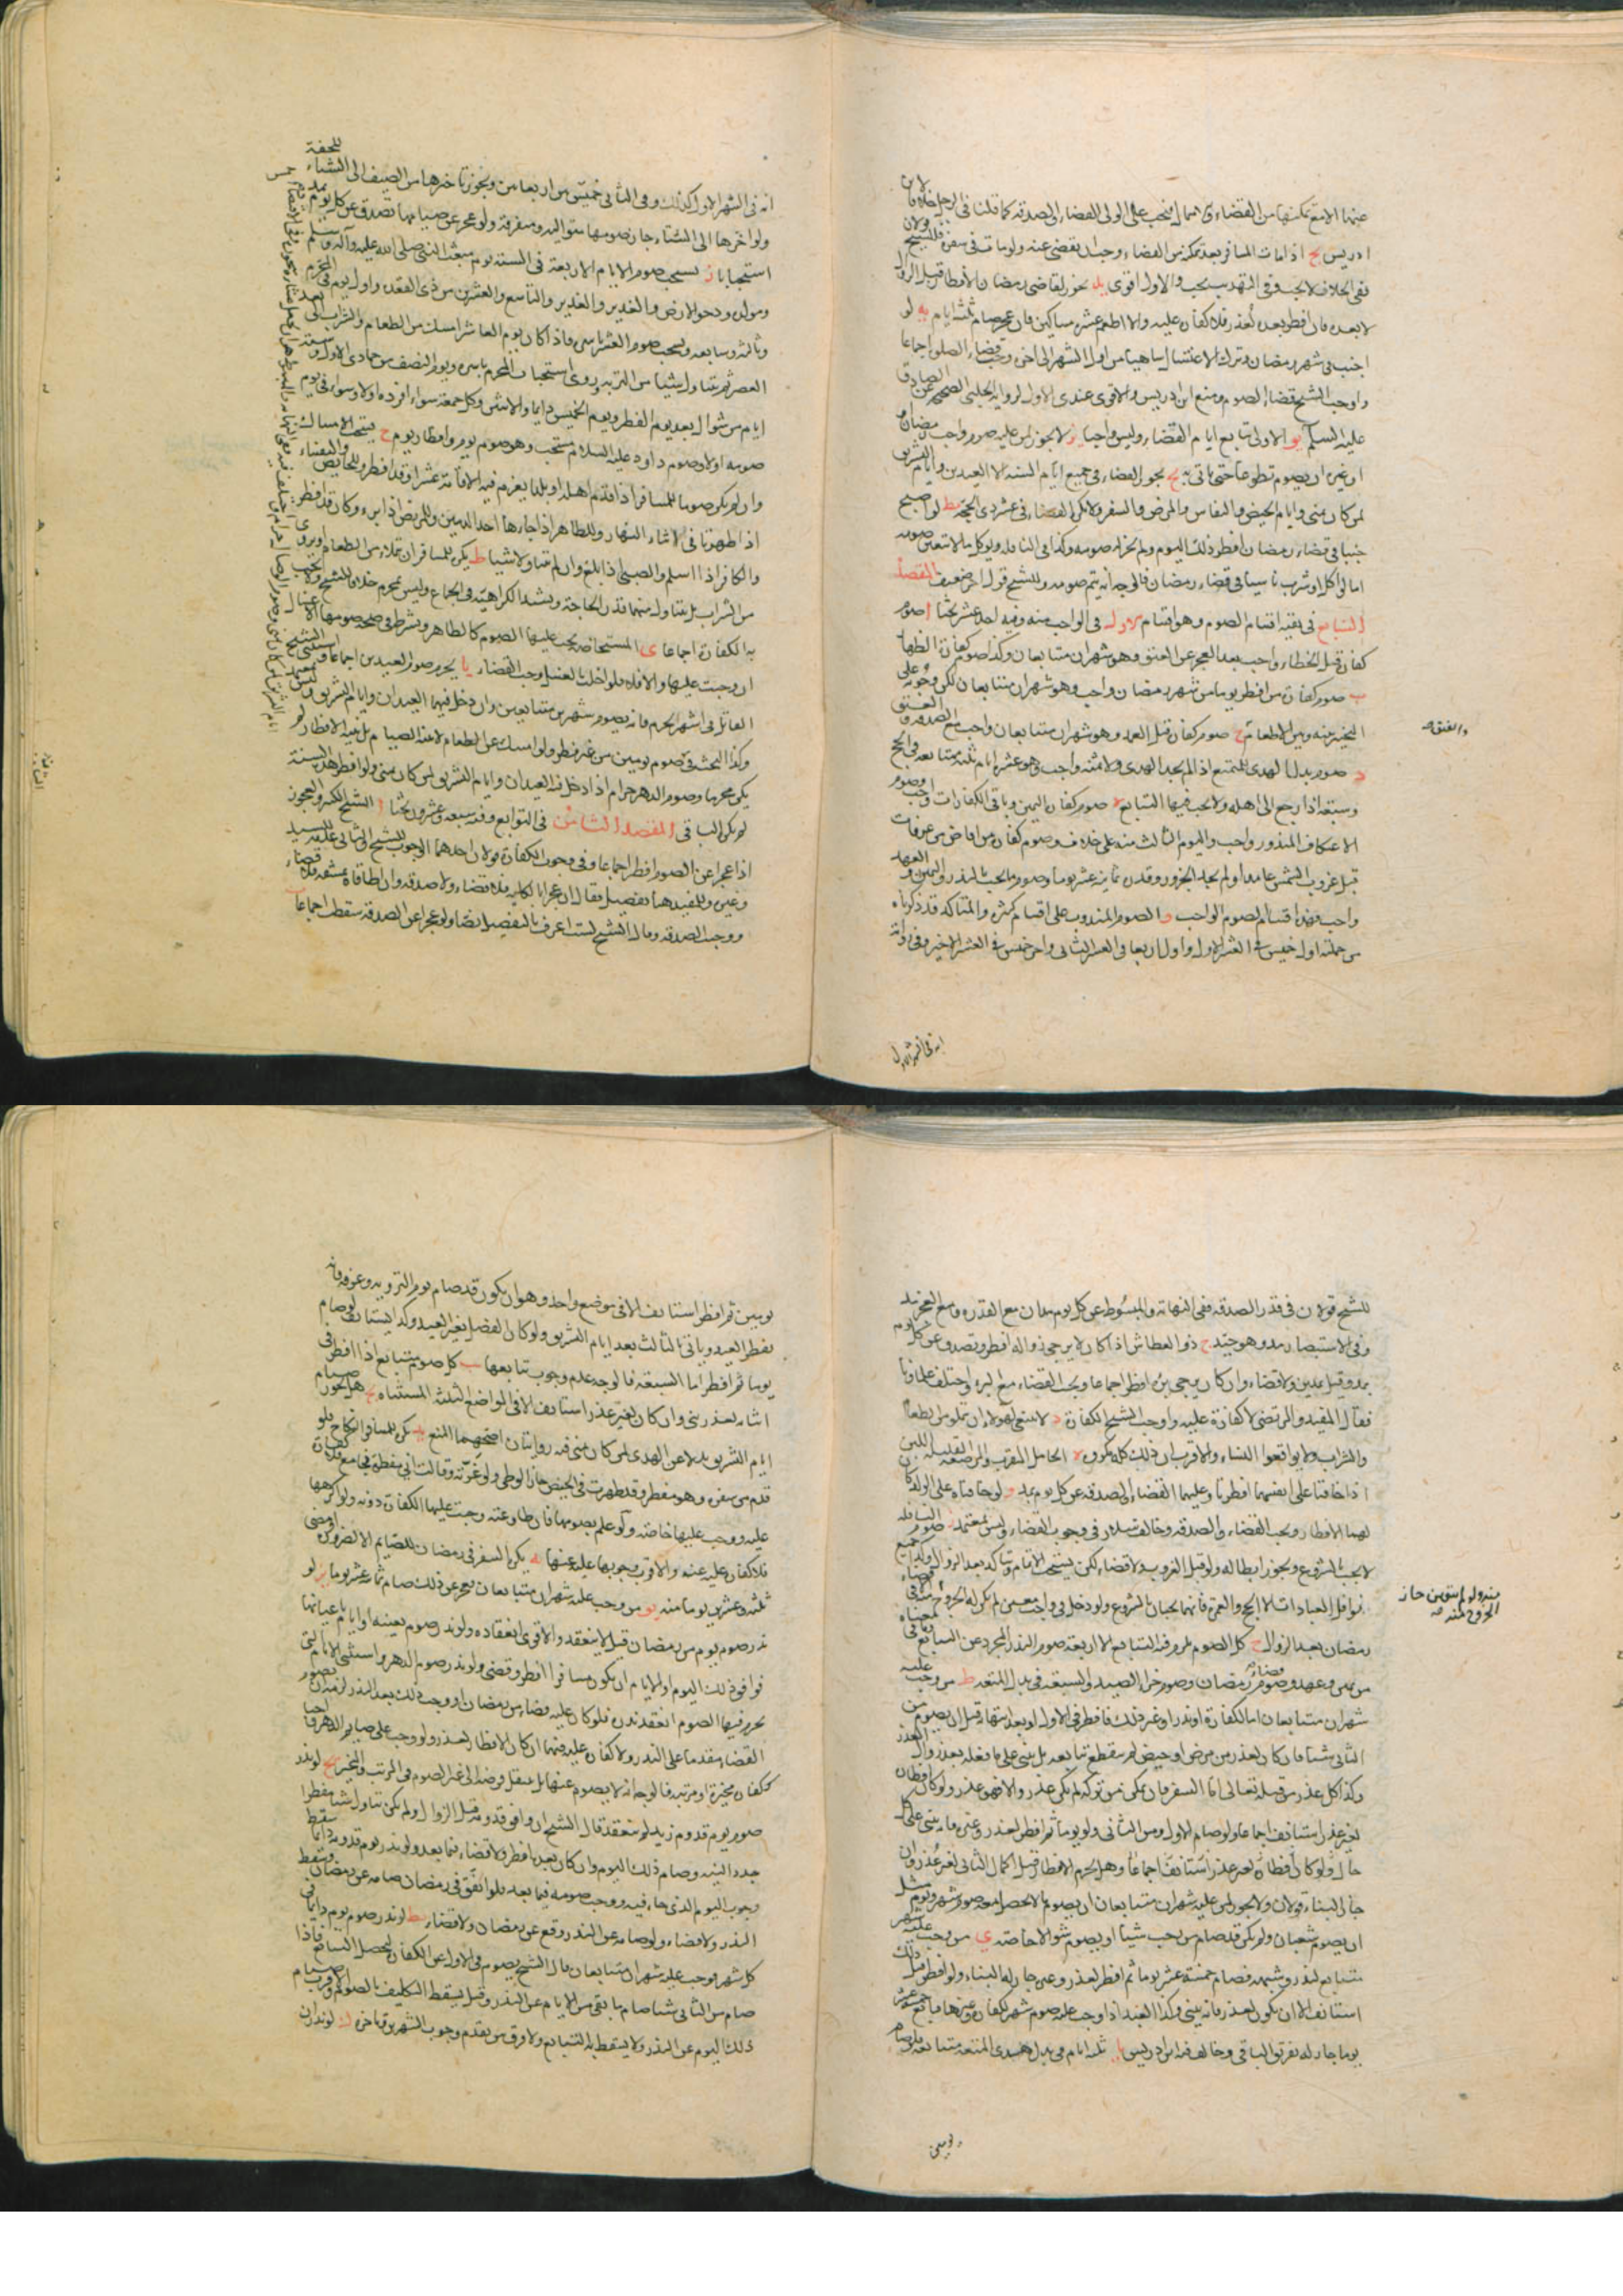 عنها الامع تمكنها من القضاء و اهمال فيجب على الولى القضاء او الصدقة كما قلنا فى الرجل خلافا لابن
ادريس يح اذا مات المسافر بعد تمكنه من القضاء وجب ان يقضى عنه ولو مات فى سفره فللشيخ قولان
ففى الخلاف لا يجب وفى التهذيب يجب والاول اقوى يد يجوز لقاضى رمضان الافطار قبل الزوال
لا بعده فان افطر بعده لعذر فلا كفارة عليه والا اطعم عشرة مساكين فان عجز صام ثلثة ايام يه لو
اجنب فى شهر رمضان وترك الاغتسال ساهيا من اول الشهر الى اخره وجب قضاء الصلوة اجماعا
واوجب الشيخ قضاء الصوم ومنع ابن ادريس والاقوى عندى الاول لرواية الحلبى الصحيحة عن الصادق
عليه السلم يو الاولى تتابع ايام القضاء وليس واجبا يز لا يجوز لمن عليه صوم واجب من رمضان
او غيره ان يصوم تطوعا حتى ياتى به يح يجوز القضاء فى جميع ايام السنة الا العيدين وايام التشريق
لمن كان بمنى وايام الحيض والنفاس والمرض والسفر ولا يكره القضاء فى عشر ذى الحجة يط لو اصبح
جنبا فى قضاء رمضان افطر ذلك اليوم ولم يجزله صومه وكذا فى النافلة وكل ما لا يتعين صومه
اما لو اكل او شرب ناسيا فى قضاء رمضان فالوجه انه يتم صومه وللشيخ قول اخر ضعيف المقصد
السابع فى بقية اقسام الصوم وهو اقسام الاول فى الواجب منه وفيه احد عشر بحثا ا صوم
كفارة قتل الخطاء واجب بعد العجز عن العتق وهو شهران متتابعان وكذا صوم كفارة الظهار
ب صوم كفارة من افطر يوما من شهر رمضان واجب وهو شهران متتابعان لكن وجوبه على
التخيير بينه وبين الاطعام ج صوم كفارة قتل العمد وهو شهران متتابعان واجب مع الصدقة و العتق
والعتق صح
د صوم بدل الهدى للمتمتع اذا لم يجد الهدى ولا ثمنه واجب وهو عشرة ايام ثلثة متتابعة فى الحج
وسبعة اذا رجع الى اهله ولا يجب فيها التتابع ه صوم كفارة اليمين وباقى الكفارات واجب وصوم
الاعتكاف المنذور واجب واليوم الثالث منه على خلاف وصوم كفارة من افاض من عرفات
قبل غروب الشمس عامدا ولم يجد الجزور وقدره ثمانية عشر يوما وصوم ما يجب بالنذر واليمين والعهد
واجب فهذه اقسام الصوم الواجب و الصوم المندوب على اقسام كثيرة والمتاكد قد ذكرناه
من جملته اول خميس فى العشر الاول واول اربعا فى العشر الثانى واخر خميس فى العشر الاخير وفى رواية
انه فى الشهر الاول
انه فى الشهر الاول كذلك وفى الثانى خميس بين اربعا من ويجوز تاخيرها من الصيف الى الشتاء للخفة
ولو اخرها الى الشتاء جاز صومها متوالية ومتفرقة ولو عجز عن صيامها تصدق عن كل يوم بمد
استحبابا ز يستحب صوم الايام الاربعة فى السنة يوم مبعث النبى صلى الله عليه واله وسلم
ومولده ودحو الارض والغدير والتاسع والعشرين من ذى القعدة واول يوم فى المحرم
وثالثه وسابعه ويستحب صوم العشر باسره فاذا كان يوم العاشر امسك من الطعام والشراب الى بعد
العصر ثم يتناول شيئا من التربة وروى استحباب المحرم باسره ويوم النصف من جمادى الاول وستة
ايام من شوال بعد يوم الفطر ويوم الخميس دايما والاثنين وكل جمعة سواء افرده اولا وسواء فى يوم
صومه اولا وصوم داود عليه السلام مستحب وهو صوم يوم وافطار يوم ح يستحب الامساك
وان لم يكن صوما للمسافر اذا قدم اهله او بلدا يعزم فيه الاقامة عشرا وقد افطر وللحايض والنفساء
اذا طهرتا فى اثناء النهار وللطاهر اذا جاءها احد الدمين وللمريض اذا ابرء وكان قد افطر
والكافر اذا اسلم والصبى اذا بلغ وان لم يتناولا شيئا ط يكره للمسافر ان يتملاء من الطعام ويروى
من الشراب بل يتناول منهما قدر الحاجة ويشتد الكراهية فى الجماع وليس بمحرم خلافا للشيخ ولا يجب
به الكفارة اجماعا ى المستحاضة يجب عليها الصوم كالطاهر ويشترط فى صحة صومها الاغسال
ان وجبت عليها والا فلا فلو اخلت بالغسل وجب القضاء يا يحرم صوم العيدين اجماعا واستثنى الشيخ
القاتل فى اشهر الحرم فانه يصوم شهرين متتابعين وان دخل فيهما العيدان وايام التشريق وليس بمعتمد
وكذا البحث فى صوم يومين من غير فطر ولو امسك عن الطعام لا بنية الصيام بل بنية الافطار لم
يكن محرما وصوم الدهر حرام اذا دخل فيه العيدان وايام التشريق لمن كان بمنى ولو افطر هذه السنة
لم يكره الباقى المقصد الثامن فى التوابع وفيه سبعة وعشرون بحثا ا الشيخ الكبير والعجوز
اذا عجزا عن الصوم افطرا اجماعا وفى وجوب الكفارة قولان احدهما الوجوب للشيخ والثانى عليه السيد
وغيره وللمفيد هنا تفصيل فقال ان عجزا بالكلية فلا قضاء ولا صدقة وان اطاقاه بمشقة فلا قضاء
ووجبت الصدقة وقال الشيخ لست اعرف بالتفصيل نصا ولو عجزا عن الصدقة سقطت اجماعا ب
للشيخ قولان فى قدر الصدقة ففى النهاية والمبسوط عن كل يوم مدان مع القدرة ومع العجز مد
وفى الاستبصار مد وهو جيد ج ذو العطاش اذا كان لا يرجى زواله افطر وتصدق عن كل يوم
بمد وقيل بمدين ولا قضاء وان كان يرجى برؤه افطر اجماعا ويجب القضاء مع البرء واختلف علماونا
فقال المفيد والمرتضى لا كفارة عليه واوجب الشيخ الكفارة د لا ينبغى لهولاء ان يتملوا من الطعام
والشراب ولا يواقعوا النساء والاقرب ان ذلك كله مكروه ه الحامل المقرب والمرضعة القليلة اللبن
اذا خافتا على انفسهما افطرتا وعليهما القضاء والصدقة عن كل يوم بمد و لو خافتا على الولد كان
لهما الافطار ويجب القضاء والصدقة وخالف سلار فى وجوب القضاء وليس بمعتمد ز صوم النافلة
لا يجب بالشروع ويجوز ابطاله ولو قبل الغروب ولا قضاء لكن يستحب الاتمام ويتاكد بعد الزوال وكذا جميع
نوافل العبادات الا الحج والعمرة فانهما يجبان بالشروع ولو دخل فى واجب معين لم يكن له الخروج منه وفى قضاء
مندوب ولو لم يتعين جاز
الخروج منه صح
رمضان بعد الزوال ح كل الصوم يلزم فيه التتابع الا اربعة صوم النذر المجرد عن التتابع وما فى معناه
من يمين وعهد وصوم قضاء رمضان وصوم جزاء الصيد والسبعة فى بدل المتعة ط من وجب عليه
شهران متتابعان اما لكفارة او نذر او غير ذلك فافطر فى الاول او بعد انتهائه قبل ان يصوم من
الثانى شيئا فان كان لعذر من مرض او حيض لم ينقطع تتابعه بل يبنى على ما فعله بعد زوال العذر
وكذا كل عذر من قبله تعالى اما السفر فان تمكن من تركه لم يكن عذر والا فهو عذر ولو كان افطاره
لغير عذر استانف اجماعا ولو صام الاول ومن الثانى ولو يوما ثم افطر لعذر وغيره فانه يبنى على كل
حال ولو كان افطاره لغير عذر استانف اجماعا وهل يحرم الافطار قبل اكمال الثانى لغير عذر وان
جاز البناء قولان ولا يجوز لمن عليه شهران متتابعان ان يصوم ما لا يحصل معه صوم شهر ويوم مثل
ان يصوم شعبان ولم يكن قد صام من رجب شيئا او يصوم شوالا خاصة ى من وجب عليه شهر
متتابع لنذر وشبهه فصام خمسة عشر يوما ثم افطر لعذر وغيره جاز له البناء ولو افطر قبل ذلك
استانف الا ان يكون لعذر فانه يبنى وكذا العبد اذا وجب عليه صوم شهر لكفارة وغيرها فتابع خمسة عشر
يوما جاز له تفريق الباقى وخالف فيه ابن ادريس يا ثلثة ايام فى بدل هدى المتعة متتابعة فلو صام
يومين
يومين ثم افطر استانف الا فى موضع واحد وهو ان يكون قد صام يوم التروية وعرفة فانه
يفطر العيد وياتى بالثالث بعد ايام التشريق ولو كان الفصل بغير العيد وكذا يستانف لو صام
يوما ثم افطر اما السبعة فالوجه عدم وجوب تتابعها يب كل صوم متتابع اذا افطر فى
اثنائه لعذر بنى وان كان لغير عذر استانف الا فى المواضع الثلثة المستثناة يج هل يجوز صيام
ايام التشريق بدلا عن الهدى لمن كان بمنى فيه روايتان اصحهما المنع يد يكره للمسافر النكاح فلو
قدم من سفره وهو مفطر وقد طهرت فى الحيض جاز الوطى ولو غرته وقالت انى مفطرة فجامع فلا كفارة
عليه ووجب عليها خاصة ولو علم بصومها فان طاوعته وجبت عليها الكفارة دونه ولو اكرهها
فلا كفارة عليه عنه والاقرب وجوبها عليه عنها يه يكره السفر فى رمضان للصايم الا لضرورة او مضى
ثلثة وعشرين يوما منه يو من وجب عليه شهران متتابعان فعجز عن ذلك صام ثمانية عشر يوما يز لو
نذر صوم يوم من رمضان قيل لا ينعقد والاقوى انعقاده ولو نذر صوم يوم بعينه او ايام باعيانها
فوافق ذلك اليوم او الايام ان يكون مسافرا افطر وقضى ولو نذر صوم الدهر واستثنى الايام التى
يحرم فيها الصوم انعقد نذره فلو كان عليه قضاء من رمضان او وجب ذلك بعد النذر لزمه ان يصوم
القضاء مقدما على النذر ولا كفارة عليه فيهما ان كان الافطار لعذر ولو وجب على صايم الدهر واجبا
كفارة مخيرة او مرتبة فالوجه انه لا يصوم عنها بل ينتقل فرضه الى غير الصوم فى المرتب والمخير يح لو نذر
صوم يوم قدوم زيد لم ينعقد قال الشيخ ان وافق قدومه قبل الزوال ولم يكن تناول شيئا مفطرا
جدد النية وصام ذلك اليوم وان كان بعده افطر ولا قضاء فيما بعد ولو نذر يوم قدومه دايما سقط
وجوب اليوم الذى جاء فيه ووجب صومه فيما بعد فلو اتفق فى رمضان صامه عن رمضان وسقط
النذر ولا قضاء ولو صامه عن النذر وقع عن رمضان ولا قضاء يط لو نذر صوم يوم دايما فى
كل شهر فوجب عليه شهران متتابعان قال الشيخ يصوم فى الاول عن الكفارة لتحصل التتابع فاذا
صام من الثانى شيئا صام ما بقى من الايام عن النذر وقيل يسقط التكليف بالصوم والاقرب صيام
ذلك اليوم عن النذر ولا يسقط به التتابع ولا فرق بين تقدم وجوب الشهرين وتاخره ك لو نذر ان